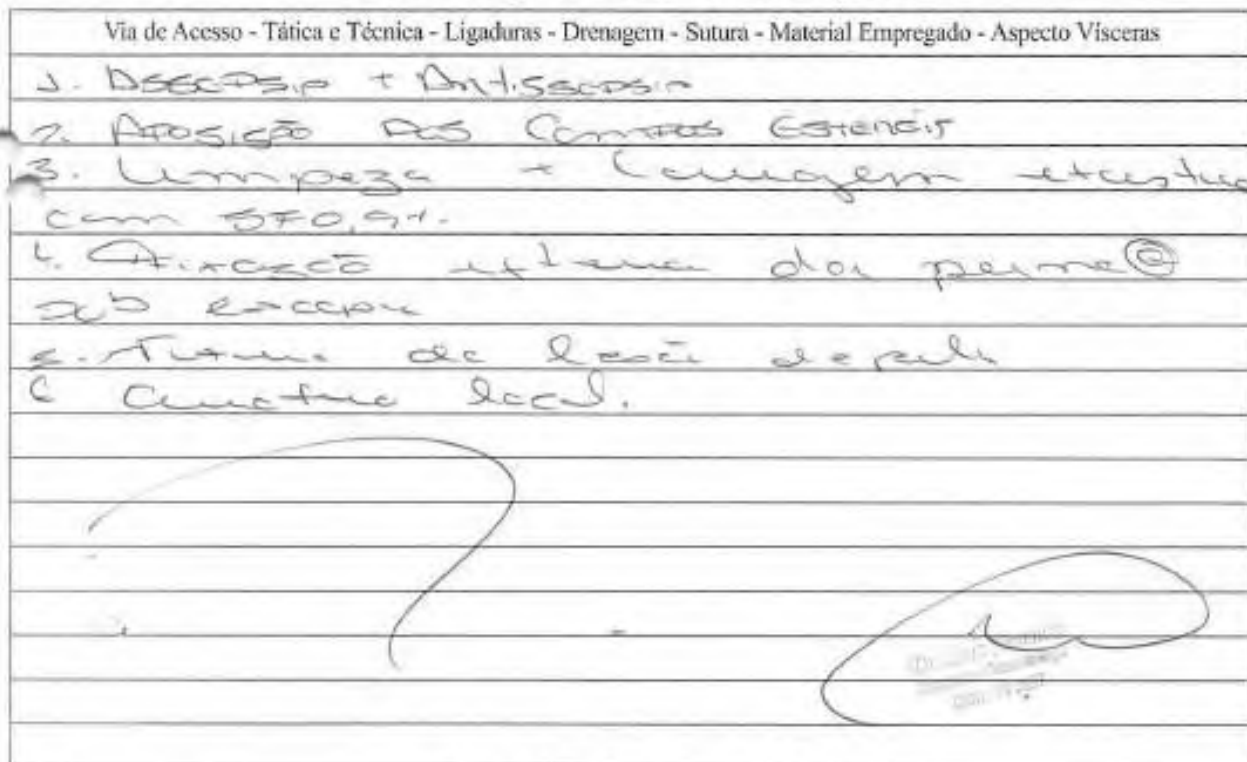 Via de Acesso - Tática e Técnica - Ligaduras - Drenagem - Sutura - Material Empregado - Aspecto Vísceras
1. Assepsia + Antissepsia
2. Aposição dos Campos Estéreis
3. Limpeza + Lavagem exaustiva
com SF0,9%.
4. Fixação externa da perna
sob escopia
5. Sutura da lesão de pele
6 Curativo local.